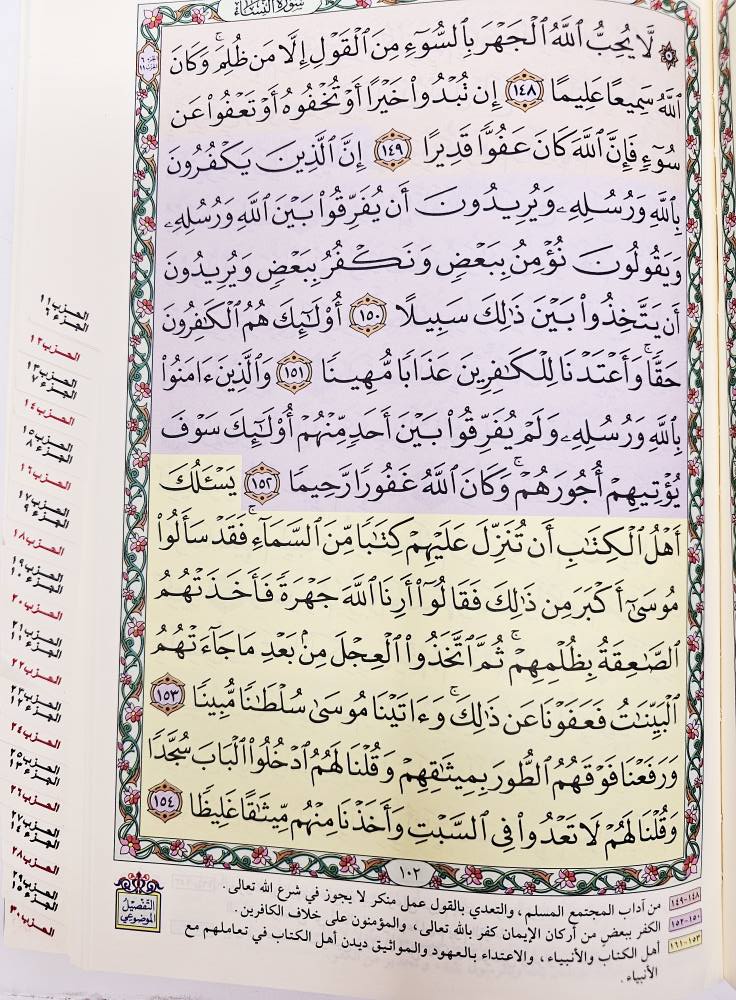 سُورَةُ النِّسَاءِ
الجزء ٦
الحزب ١١
۞ لَّا يُحِبُّ ٱللَّهُ ٱلْجَهْرَ بِٱلسُّوٓءِ مِنَ ٱلْقَوْلِ إِلَّا مَن ظُلِمَ ۚ وَكَانَ
ٱللَّهُ سَمِيعًا عَلِيمًا ١٤٨ إِن تُبْدُوا۟ خَيْرًا أَوْ تُخْفُوهُ أَوْ تَعْفُوا۟ عَن
سُوٓءٍ فَإِنَّ ٱللَّهَ كَانَ عَفُوًّا قَدِيرًا ١٤٩ إِنَّ ٱلَّذِينَ يَكْفُرُونَ
بِٱللَّهِ وَرُسُلِهِۦ وَيُرِيدُونَ أَن يُفَرِّقُوا۟ بَيْنَ ٱللَّهِ وَرُسُلِهِۦ
وَيَقُولُونَ نُؤْمِنُ بِبَعْضٍ وَنَكْفُرُ بِبَعْضٍ وَيُرِيدُونَ
أَن يَتَّخِذُوا۟ بَيْنَ ذَٰلِكَ سَبِيلًا ١٥٠ أُو۟لَٰٓئِكَ هُمُ ٱلْكَٰفِرُونَ
حَقًّا ۚ وَأَعْتَدْنَا لِلْكَٰفِرِينَ عَذَابًا مُّهِينًا ١٥١ وَٱلَّذِينَ ءَامَنُوا۟
بِٱللَّهِ وَرُسُلِهِۦ وَلَمْ يُفَرِّقُوا۟ بَيْنَ أَحَدٍ مِّنْهُمْ أُو۟لَٰٓئِكَ سَوْفَ
يُؤْتِيهِمْ أُجُورَهُمْ ۗ وَكَانَ ٱللَّهُ غَفُورًا رَّحِيمًا ١٥٢ يَسْـَٔلُكَ
أَهْلُ ٱلْكِتَٰبِ أَن تُنَزِّلَ عَلَيْهِمْ كِتَٰبًا مِّنَ ٱلسَّمَآءِ ۚ فَقَدْ سَأَلُوا۟
مُوسَىٰٓ أَكْبَرَ مِن ذَٰلِكَ فَقَالُوٓا۟ أَرِنَا ٱللَّهَ جَهْرَةً فَأَخَذَتْهُمُ
ٱلصَّٰعِقَةُ بِظُلْمِهِمْ ۚ ثُمَّ ٱتَّخَذُوا۟ ٱلْعِجْلَ مِنۢ بَعْدِ مَا جَآءَتْهُمُ
ٱلْبَيِّنَٰتُ فَعَفَوْنَا عَن ذَٰلِكَ ۚ وَءَاتَيْنَا مُوسَىٰ سُلْطَٰنًا مُّبِينًا ١٥٣
وَرَفَعْنَا فَوْقَهُمُ ٱلطُّورَ بِمِيثَٰقِهِمْ وَقُلْنَا لَهُمُ ٱدْخُلُوا۟ ٱلْبَابَ سُجَّدًا
وَقُلْنَا لَهُمْ لَا تَعْدُوا۟ فِى ٱلسَّبْتِ وَأَخَذْنَا مِنْهُم مِّيثَٰقًا غَلِيظًا ١٥٤
١٠٢
التَّفْصِيلُ
الموضوعي
١٤٨-١٤٩ من آداب المجتمع المسلم، والتعدي بالقول عمل منكر لا يجوز في شرع الله تعالى.
١٥٠-١٥٢ الكفر ببعض من أركان الإيمان كفر بالله تعالى، والمؤمنون على خلاف الكافرين.
١٥٣-١٦١ أهل الكتاب والأنبياء، والاعتداء بالعهود والمواثيق ديدن أهل الكتاب في تعاملهم مع
الأنبياء.
الحزب ١١
الجزء ٦
الحزب ١٢
الحزب ١٣
الجزء ٧
الحزب ١٤
الحزب ١٥
الجزء ٨
الحزب ١٦
الحزب ١٧
الجزء ٩
الحزب ١٨
الحزب ١٩
الجزء ١٠
الحزب ٢٠
الحزب ٢١
الجزء ١١
الحزب ٢٢
الحزب ٢٣
الجزء ١٢
الحزب ٢٤
الحزب ٢٥
الجزء ١٣
الحزب ٢٦
الحزب ٢٧
الجزء ١٤
الحزب ٢٨
الحزب ٢٩
الجزء ١٥
الحزب ٣٠